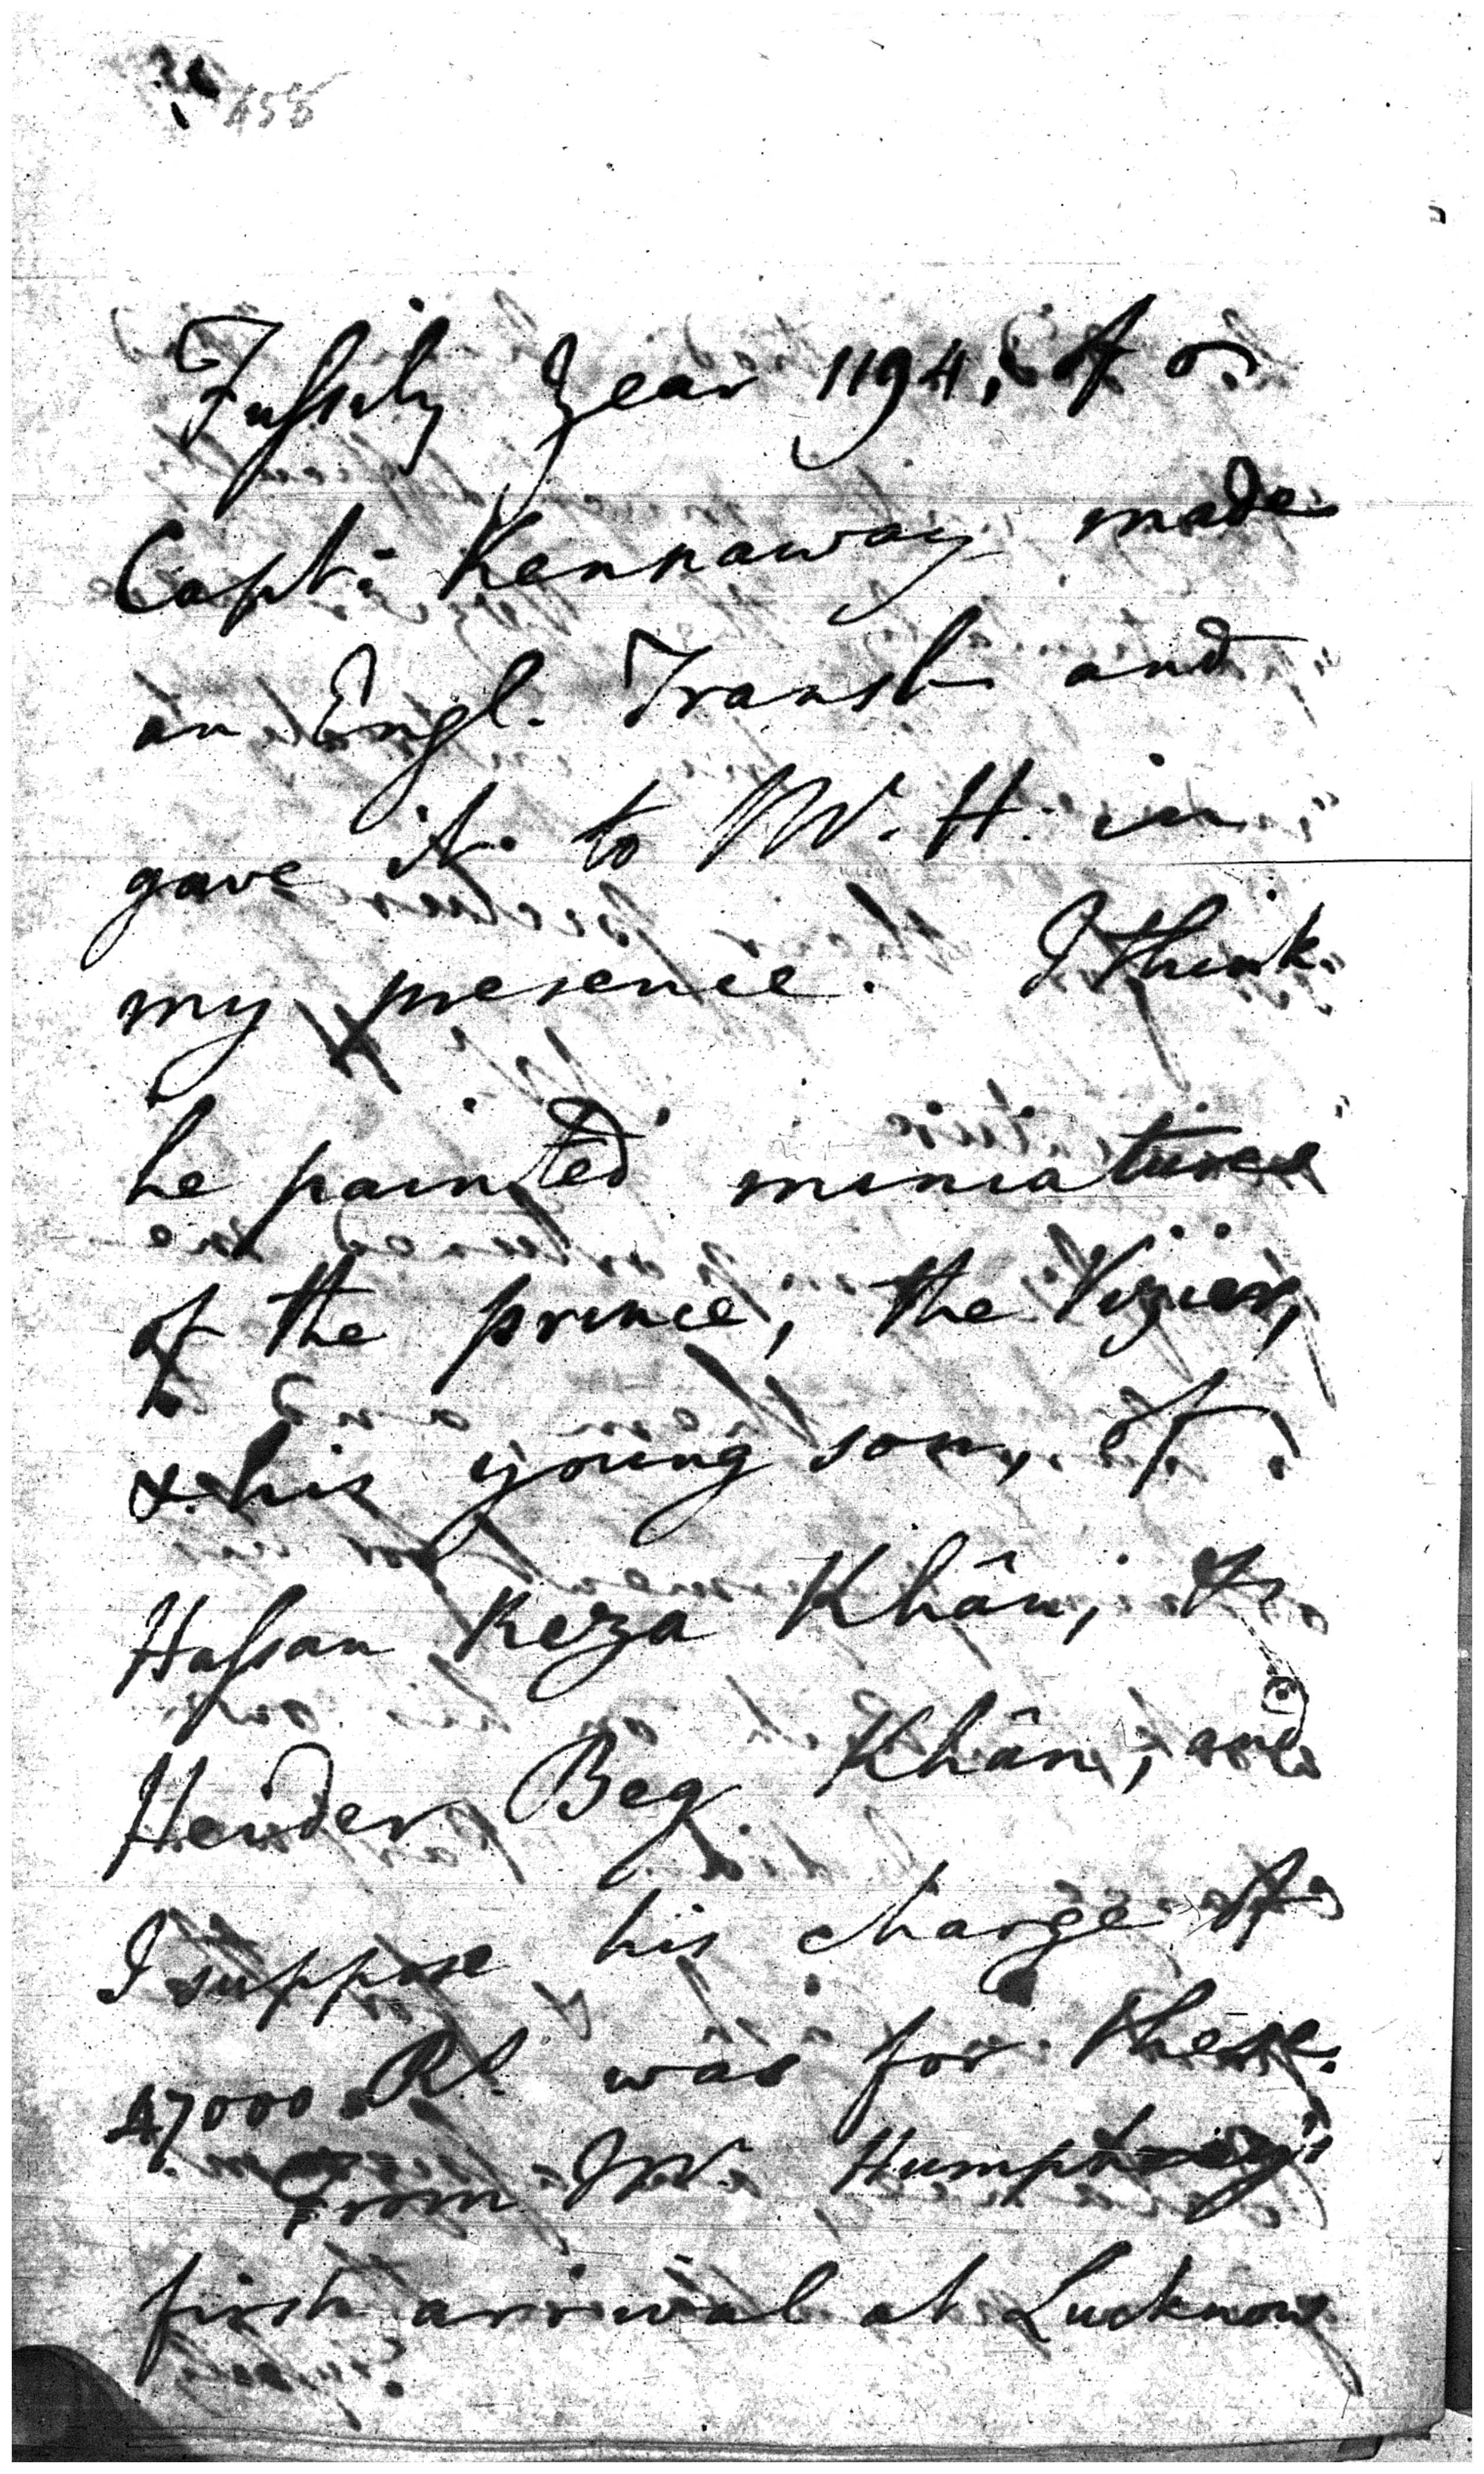 455
Fussily Year 1194, of
Capt: Kennaway made
an Engl. Transl and
gave it to Mr. H. in
my presence. I think
he painted miniatures
of the prince, the Vizier,
& his young son, of
Hassan Reza Khân, of
Heider Beg Khân, and
I suppose his charge of
47000 Rs. was for these.
From Mr. Humphrey's
first arrival at Lucknow